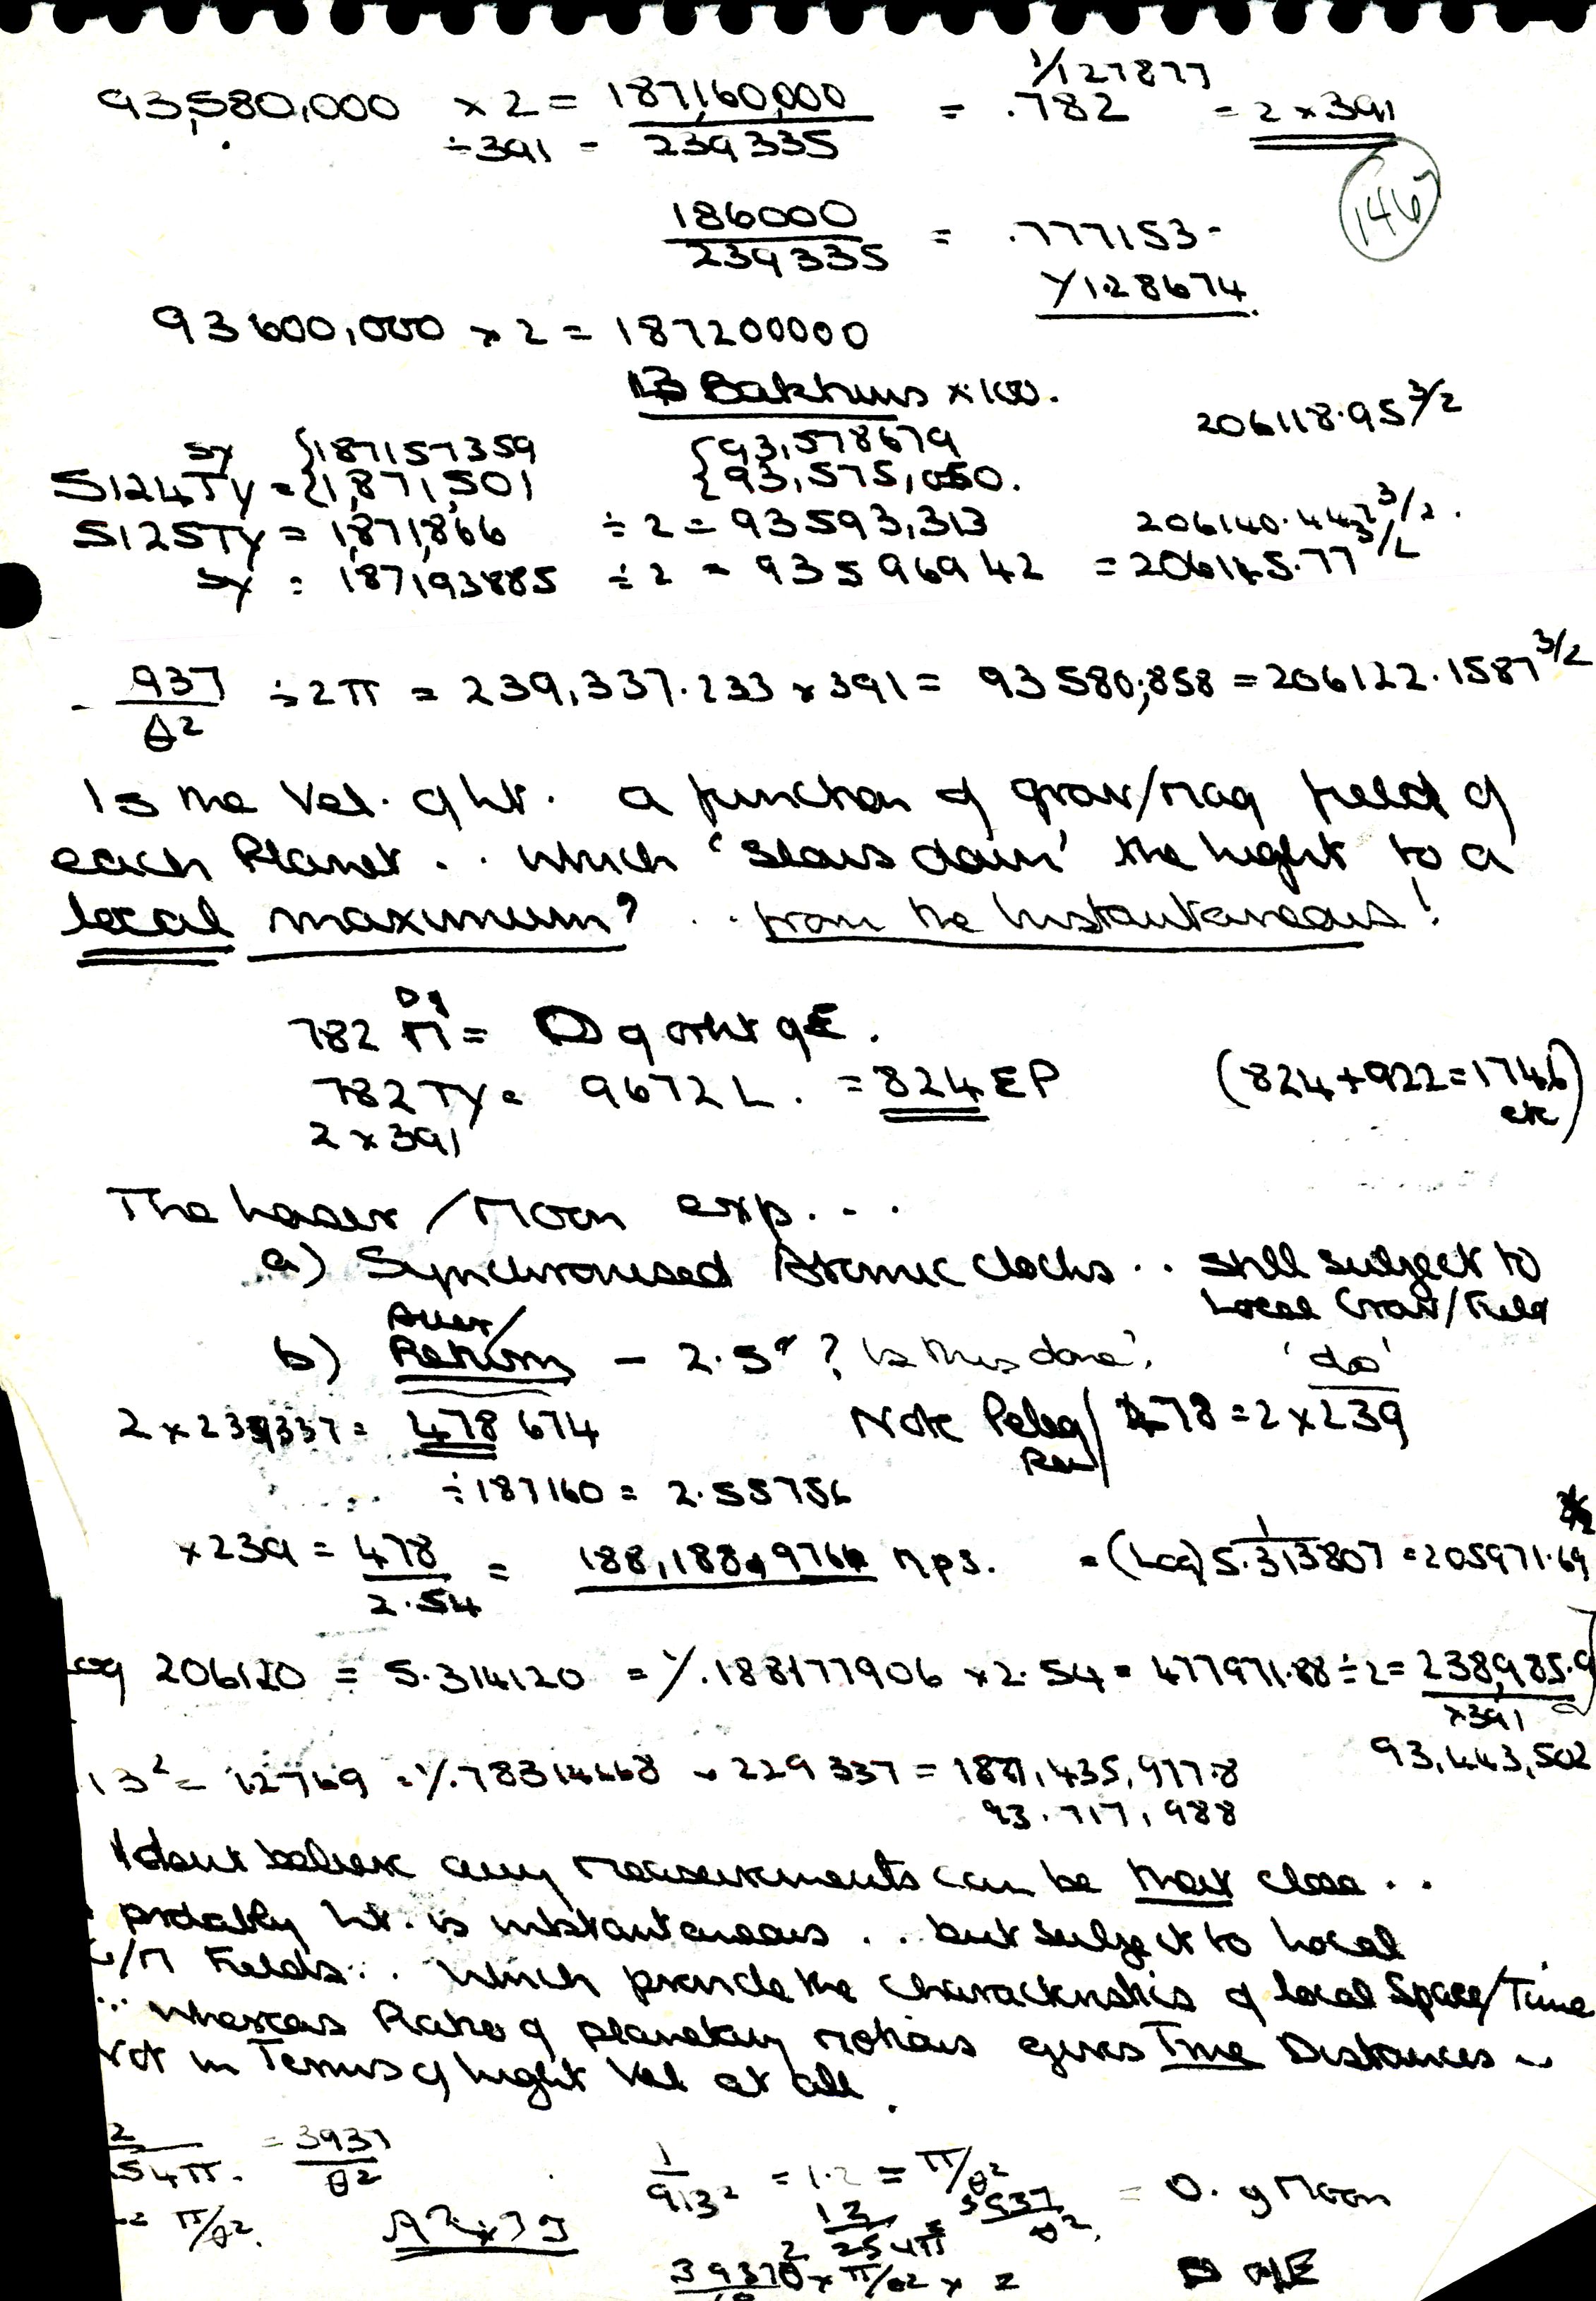 1/127877
93,580,000 × 2 = 187,160,000 = .782 = 2 × 391
÷391 = 239335
146
186000 = .777153-
239335
1/1.28674
93600,000 × 2 = 187200000
Bakhuns × 100.
206118.95 3/2
sy {187157359 {93,578679
5124Ty = {1,871,501 {93,575,050.
5125Ty = 1,871,866 ÷ 2 = 93593,313 206140.442 3/2.
sy = 187193885 ÷ 2 = 93596942 = 206145.77 3/2
937 ÷ 2π = 239,337.233 × 391 = 93580,858 = 206122.1587 3/2
θ2
Is the Vel. of Lt. a function of grav/mag field of
each Planet.. which 'slows down' the light to a
local maximum? .. from the Instantaneous!
782 M = D of orbit of E.
782 Ty = 9672 L. = 824 EP (824+922=1746
2 × 391 etc)
The Laser/Moon exp...
a) Synchronised Atomic clocks.. still subject to
Local Grav/Field
b) Return – 2.5"? Is this done? 'do'
2 × 239337 = 478 674 Note Peleg/ 478 = 2 × 239
Reu
÷187160 = 2.55756
× 239 = 478 = 188,188.9764 mps. = (Log) 5.313807 = 205971.69
2.54
Log 206120 = 5.314120 = 1/.188177906 × 2.54 = 477971.88 ÷ 2 = 238,985.9
×391
93,443,502
13² = 12769 = 1/.78314668 × 229337 = 187,435,977.8
93.717,988
I dont believe any measurements can be that close..
probably Lt. is instantaneous... but subject to Local
G/M Fields.. which provide the characteristics of local Space/Time
... whereas Ratio of planetary motions gives Time Distances ..
Not in Terms of Light Vel at all.
2 = 3937
54π. θ2
= π/θ2.
1 = 1.2 = π/θ2 = D. of Moon
913²
12 = 3937
254π θ2.
39370 × π/θ2 × 2 D of E